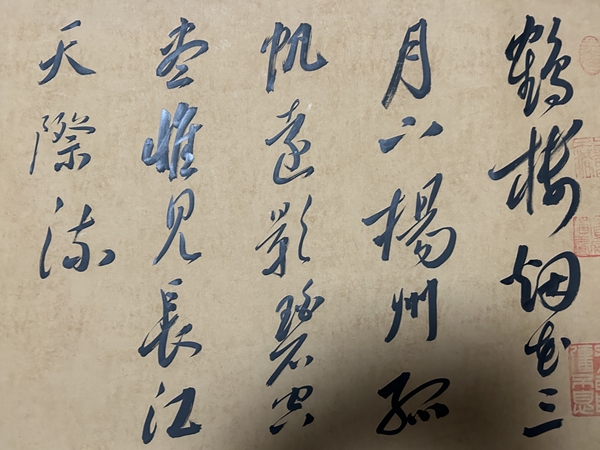 鹤楼烟花三
月下楊州孤
帆遠影碧空
盡惟見長江
天際流